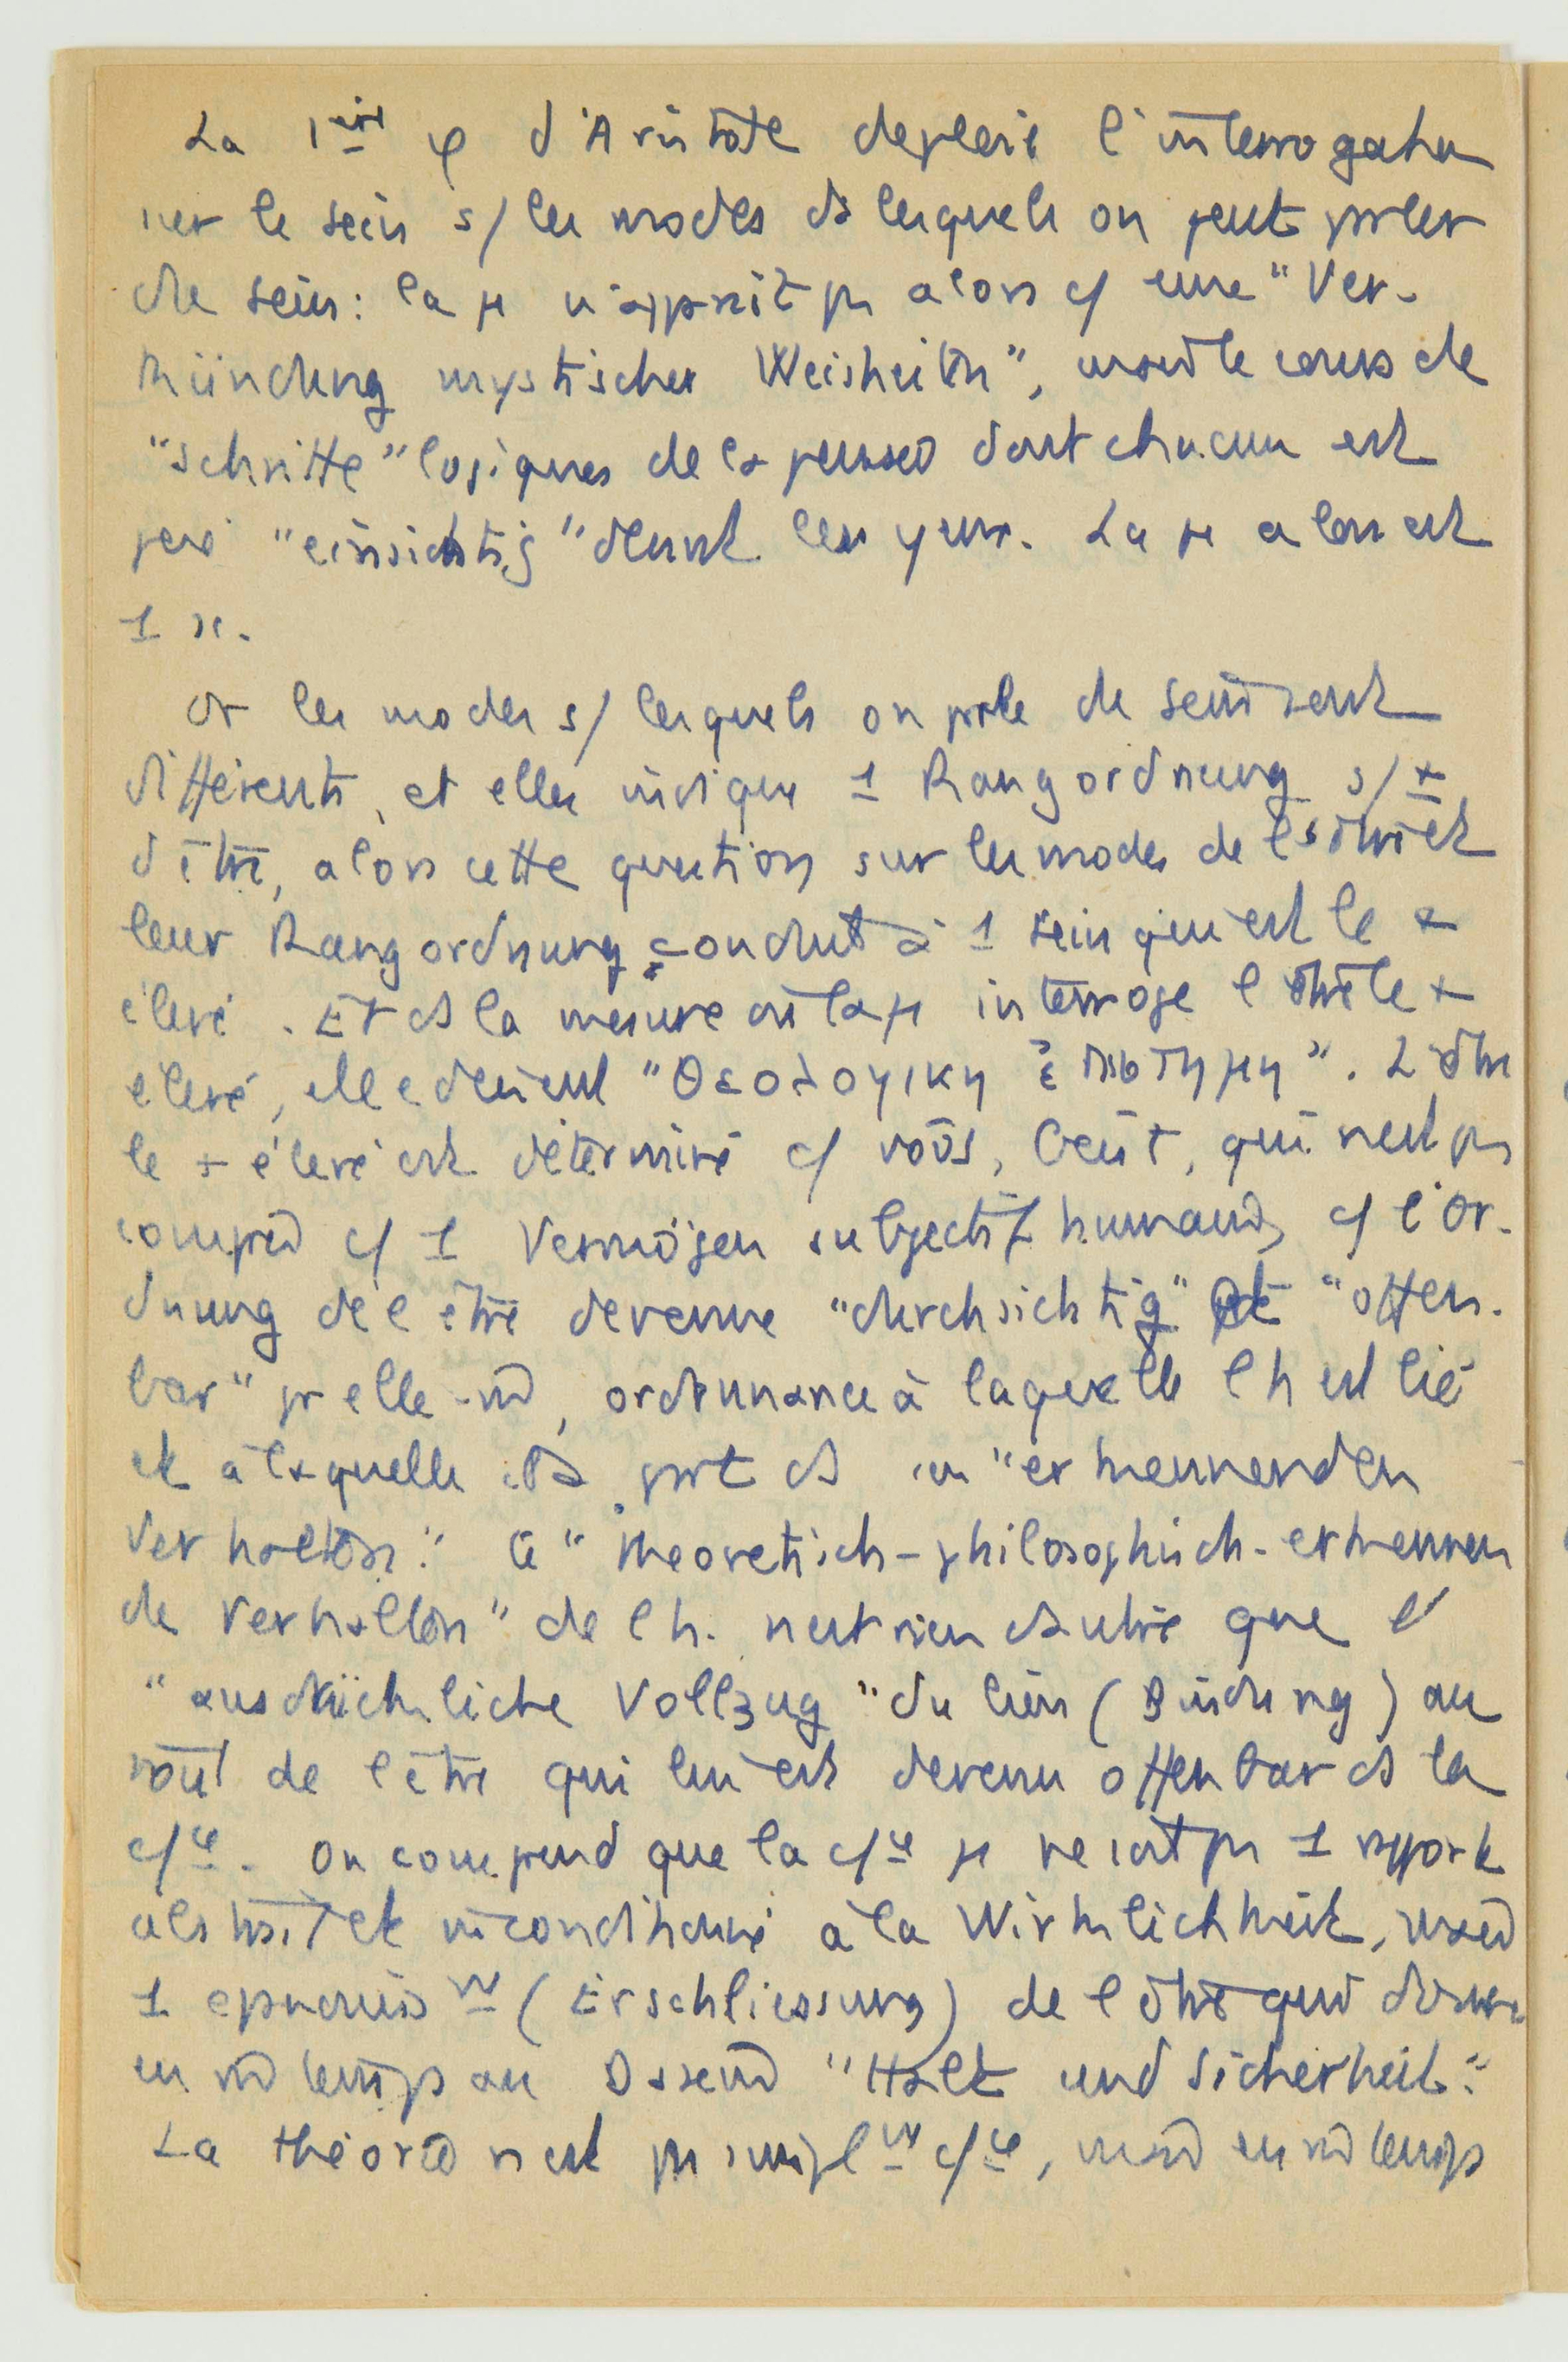 La 1ère φ d'Aristote déploie l'interrogation
sur le sein s/ les modes ds lesquels on peut prler
de sein : la μ n'apprait ps alors c/ une "Ver-
kündung mystischer Weisheiten", le cours de
"schritte" logiques de la pensée dont chacun est
"einsichtig" devant les yeux. La μ alors est
1 κ.
Or les modes s/ lesquels on prle de sein sont
différents, et elles indique 1 Rangordnung s/ +
d'être, alors cette question sur les modes de l'être et
leur Rangordnung conduit à 1 sein qui est le +
élevé. Et ds la mesure où la μ interroge l'être le +
élevé, elle devient "Θεολογικη ἐπιστημη". L'être
le + élevé est déterminé c/ νοῦς, Geist, qui n'est ps
compris c/ 1 Vermögen subjectif humain, c/ l'Or-
dnung de l'être devenue "durchsichtig" et "offen-
bar" pr elle-m̂, ordonnance à laquelle l'h est lié
et à laquelle il prt ds un "erkennenden
Verhalten". Le "theoretisch-philosophisch-erkennen
de Verhalten" de l'h. n'est rien d'autre que l'
"ausdrückliche Vollzug" du lien (Bindung) au
νοῦς de l'être qui lui est devenu offenbar ds la
c/ce. On comprend que la c/ce μ ne soit ps 1 rapport
abstrait et inconditionné à la Wirklichkeit, mais
1 épanouisst (Erschliessung) de l'être qui donne
en m̂ temps au Dasein "Halt und Sicherheit".
La théorie n'est ps simplt c/ce, mais en m̂ temps